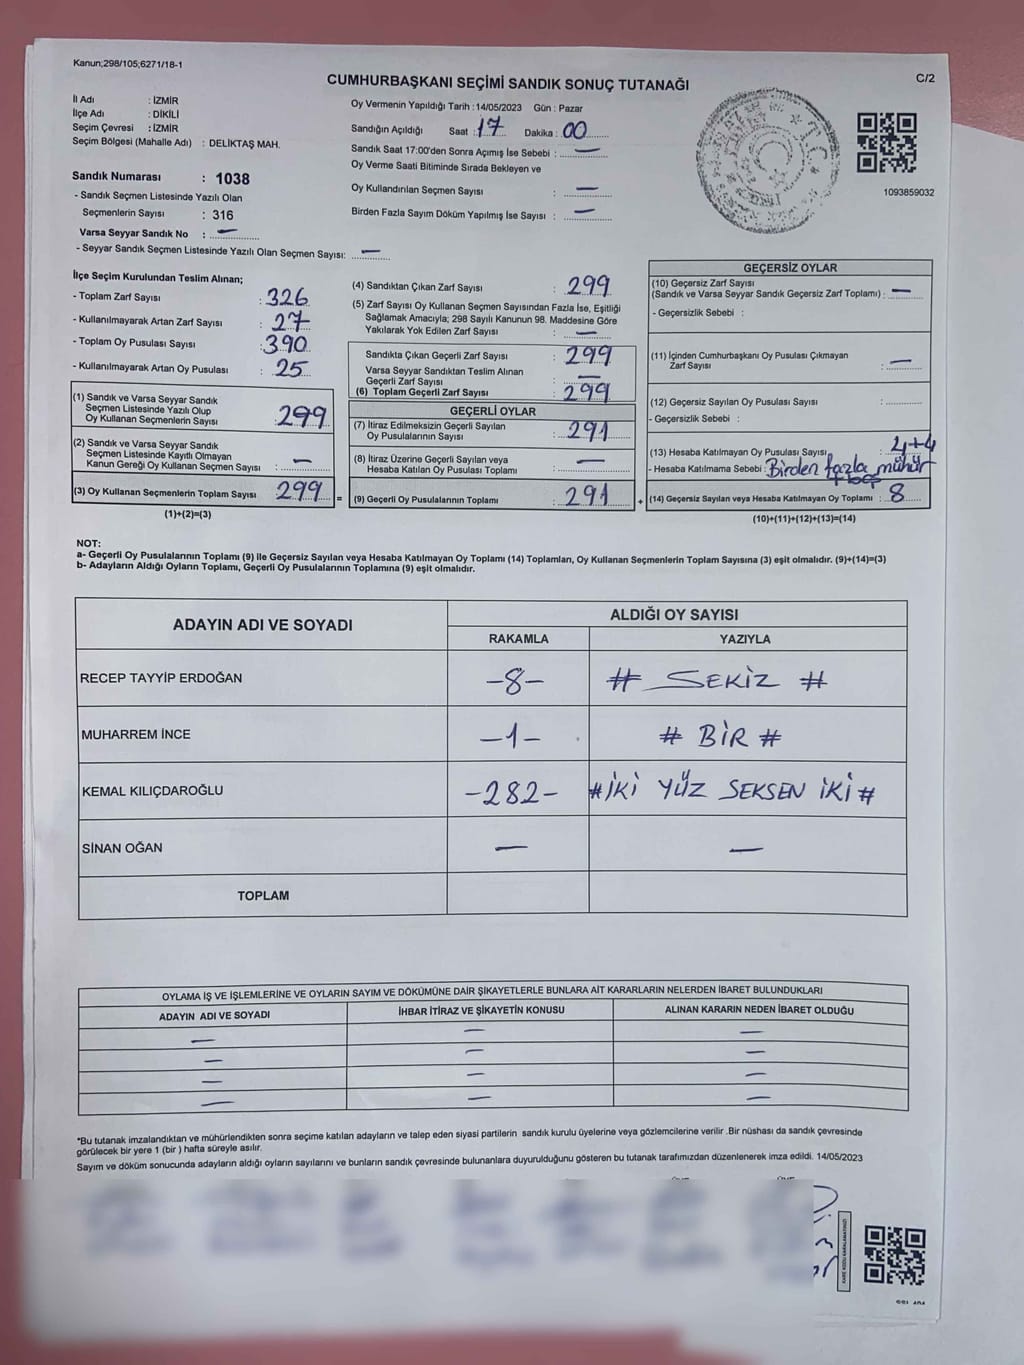 Kanun;298/105;6271/18-1
C/2
CUMHURBAŞKANI SEÇİMİ SANDIK SONUÇ TUTANAĞI
İl Adı : İZMİR
İlçe Adı : DİKİLİ
Seçim Çevresi : İZMİR
Seçim Bölgesi (Mahalle Adı) : DELİKTAŞ MAH.
Sandık Numarası : 1038
- Sandık Seçmen Listesinde Yazılı Olan
Seçmenlerin Sayısı : 316
Varsa Seyyar Sandık No : —
- Seyyar Sandık Seçmen Listesinde Yazılı Olan Seçmen Sayısı: —
Oy Vermenin Yapıldığı Tarih : 14/05/2023 Gün : Pazar
Sandığın Açıldığı Saat : 17 Dakika : 00
Sandık Saat 17:00'den Sonra Açımış İse Sebebi : —
Oy Verme Saati Bitiminde Sırada Bekleyen ve
Oy Kullandırılan Seçmen Sayısı : —
Birden Fazla Sayım Döküm Yapılmış İse Sayısı : —
1093859032
İlçe Seçim Kurulundan Teslim Alınan;
- Toplam Zarf Sayısı : 326
- Kullanılmayarak Artan Zarf Sayısı : 27
- Toplam Oy Pusulası Sayısı : 390
- Kullanılmayarak Artan Oy Pusulası : 25
(1) Sandık ve Varsa Seyyar Sandık
Seçmen Listesinde Yazılı Olup
Oy Kullanan Seçmenlerin Sayısı : 299
(2) Sandık ve Varsa Seyyar Sandık
Seçmen Listesinde Kayıtlı Olmayan
Kanun Gereği Oy Kullanan Seçmen Sayısı : —
(3) Oy Kullanan Seçmenlerin Toplam Sayısı : 299 =
(1)+(2)=(3)
(4) Sandıktan Çıkan Zarf Sayısı : 299
(5) Zarf Sayısı Oy Kullanan Seçmen Sayısından Fazla İse, Eşitliği
Sağlamak Amacıyla; 298 Sayılı Kanunun 98. Maddesine Göre
Yakılarak Yok Edilen Zarf Sayısı : —
Sandıkta Çıkan Geçerli Zarf Sayısı : 299
Varsa Seyyar Sandıktan Teslim Alınan
Geçerli Zarf Sayısı : —
(6) Toplam Geçerli Zarf Sayısı : 299
GEÇERLİ OYLAR
(7) İtiraz Edilmeksizin Geçerli Sayılan
Oy Pusulalarının Sayısı : 291
(8) İtiraz Üzerine Geçerli Sayılan veya
Hesaba Katılan Oy Pusulası Toplamı : —
(9) Geçerli Oy Pusulalarının Toplamı : 291 +
GEÇERSİZ OYLAR
(10) Geçersiz Zarf Sayısı
(Sandık ve Varsa Seyyar Sandık Geçersiz Zarf Toplamı) : —
- Geçersizlik Sebebi :
(11) İçinden Cumhurbaşkanı Oy Pusulası Çıkmayan
Zarf Sayısı : —
(12) Geçersiz Sayılan Oy Pusulası Sayısı :
- Geçersizlik Sebebi :
(13) Hesaba Katılmayan Oy Pusulası Sayısı : 4+4
- Hesaba Katılmama Sebebi : Birden fazla mühür
(14) Geçersiz Sayılan veya Hesaba Katılmayan Oy Toplamı : 8
(10)+(11)+(12)+(13)=(14)
NOT:
a- Geçerli Oy Pusulalarının Toplamı (9) ile Geçersiz Sayılan veya Hesaba Katılmayan Oy Toplamı (14) Toplamları, Oy Kullanan Seçmenlerin Toplam Sayısına (3) eşit olmalıdır. (9)+(14)=(3)
b- Adayların Aldığı Oyların Toplamı, Geçerli Oy Pusulalarının Toplamına (9) eşit olmalıdır.
ADAYIN ADI VE SOYADI
ALDIĞI OY SAYISI
RAKAMLA YAZIYLA
RECEP TAYYİP ERDOĞAN -8- # SEKİZ #
MUHARREM İNCE -1- # BİR #
KEMAL KILIÇDAROĞLU -282- # İKİ YÜZ SEKSEN İKİ #
SİNAN OĞAN — —
TOPLAM
OYLAMA İŞ VE İŞLEMLERİNE VE OYLARIN SAYIM VE DÖKÜMÜNE DAİR ŞİKAYETLERLE BUNLARA AİT KARARLARIN NELERDEN İBARET BULUNDUKLARI
ADAYIN ADI VE SOYADI İHBAR İTİRAZ VE ŞİKAYETİN KONUSU ALINAN KARARIN NEDEN İBARET OLDUĞU
— — —
— — —
— — —
— — —
*Bu tutanak imzalandıktan ve mühürlendikten sonra seçime katılan adayların ve talep eden siyasi partilerin sandık kurulu üyelerine veya gözlemcilerine verilir .Bir nüshası da sandık çevresinde
görülecek bir yere 1 (bir ) hafta süreyle asılır.
Sayım ve döküm sonucunda adayların aldığı oyların sayılarını ve bunların sandık çevresinde bulunanlara duyurulduğunu gösteren bu tutanak tarafımızdan düzenlenerek imza edildi. 14/05/2023